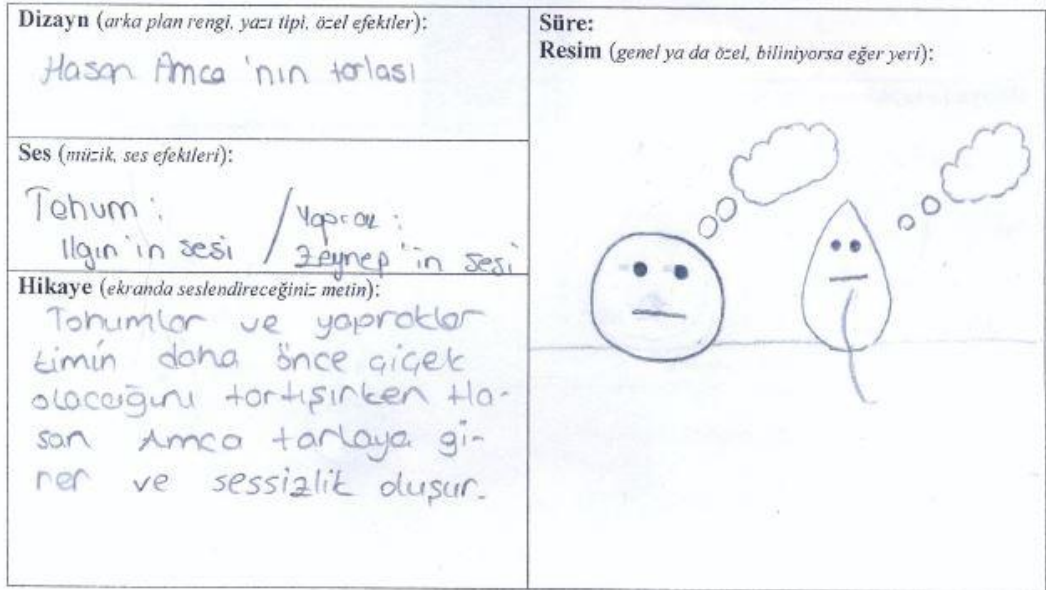 Dizayn (arka plan rengi, yazı tipi, özel efektler):
Hasan Amca'nın tarlası
Ses (müzik, ses efektleri):
Tohum : / Yaprak :
Ilgın'in sesi / Zeynep'in sesi
Hikaye (ekranda seslendireceğiniz metin):
Tohumlar ve yapraklar
kimin daha önce çiçek
olacağını tartışırken Ha-
san Amca tarlaya gi-
rer ve sessizlik oluşur.
Süre:
Resim (genel ya da özel, biliniyorsa eğer yeri):